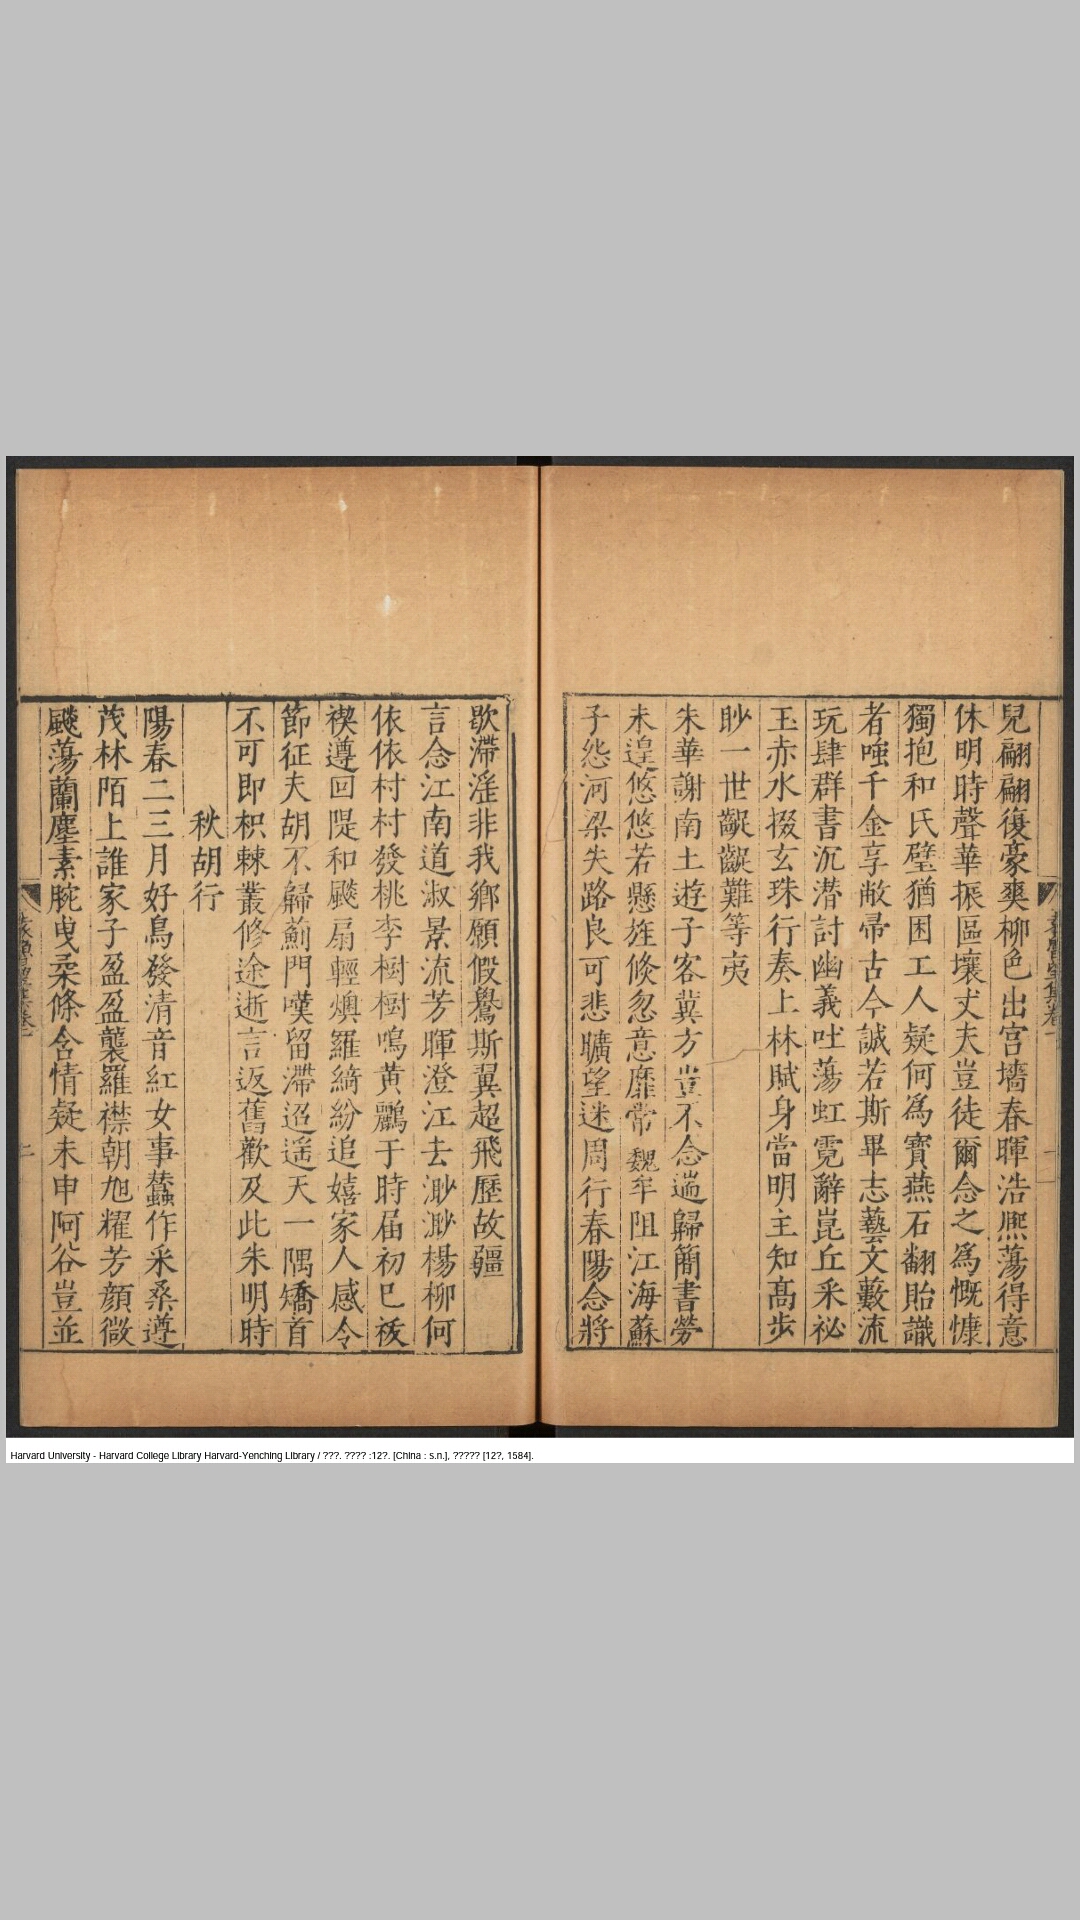 兒翩翩復豪爽柳色出宫墻春暉浩熈蕩得意
休明時聲華振區壤丈夫豈徒爾念之爲慨慷
獨抱和氏璧猶困工人疑何爲寳燕石翻貽譏
者嗤千金享敝帚古今誠若斯畢志藝文藪流
玩肆群書沉潜討幽義吐蕩虹霓辭崑丘采祕
玉赤水掇玄珠行奏上林賦身當明主知髙步
眇一世齪齪難等夷
朱華謝南土遊子客冀方豈不念遄歸簡書勞
未遑悠悠若懸旌倐忽意靡常魏牟阻江海蘇
子怨河梁失路良可悲曠望迷周行春陽念將
歇滯滛非我鄉願假鸒斯翼超飛歷故疆
言念江南道淑景流芳暉澄江去渺渺楊柳何
依依村村發桃李樹樹鳴黄鸝于時届初巳祓
禊遵回隄和飈扇輕燠羅綺紛追嬉家人感令
節征夫胡不歸薊門嘆留滯迢遥天一隅矯首
不可即枳棘叢修途逝言返舊歡及此朱明時
秋胡行
陽春二三月好鳥發清音紅女事蠶作采桑遵
茂林陌上誰家子盈盈襲羅襟朝旭耀芳顔微
飈蕩蘭塵素腕曳柔條含情疑未申阿谷豈並